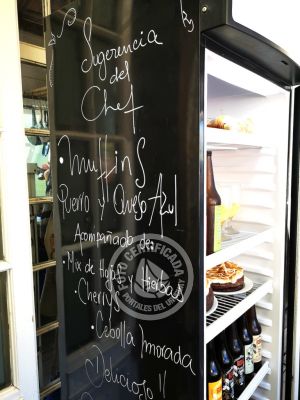 Sugerencia
del
Chef
• Muffins
Puerro y Queso Azul
Acompañado de:
• Mix de Hojas y Hierbas
• Cherrys
• Cebolla Morada
Delicioso!!
FOTO CERTIFICADA
PORTALES DEL URUGUAY